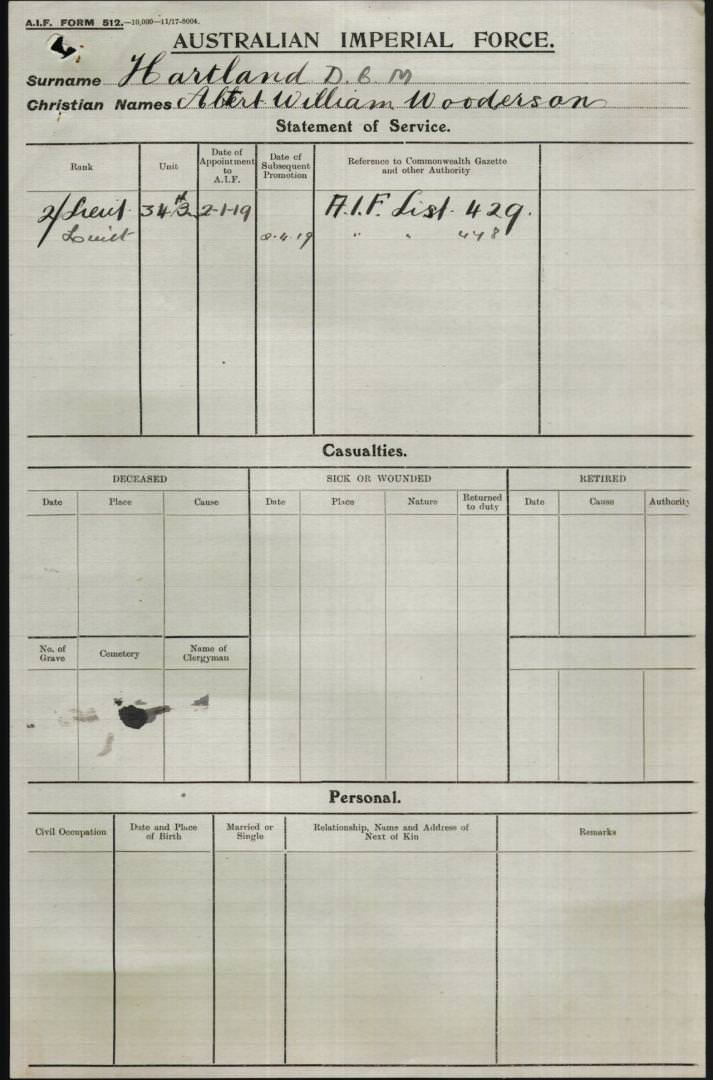 A.I.F. FORM 512.—10,000—11/17-8004.
AUSTRALIAN IMPERIAL FORCE.
Surname Hartland D.C.M
Christian Names Albert William Wooderson
Statement of Service.
Rank Unit Date of Appointment to A.I.F. Date of Subsequent Promotion Reference to Commonwealth Gazette and other Authority
2/Lieut 34th B 2-1-19 A.I.F. List 429.
Lieut 8.4.19 " " 448
Casualties.
DECEASED SICK OR WOUNDED RETIRED
Date Place Cause Date Place Nature Returned to duty Date Cause Authority
No. of Grave Cemetery Name of Clergyman
Personal.
Civil Occupation Date and Place of Birth Married or Single Relationship, Name and Address of Next of Kin Remarks